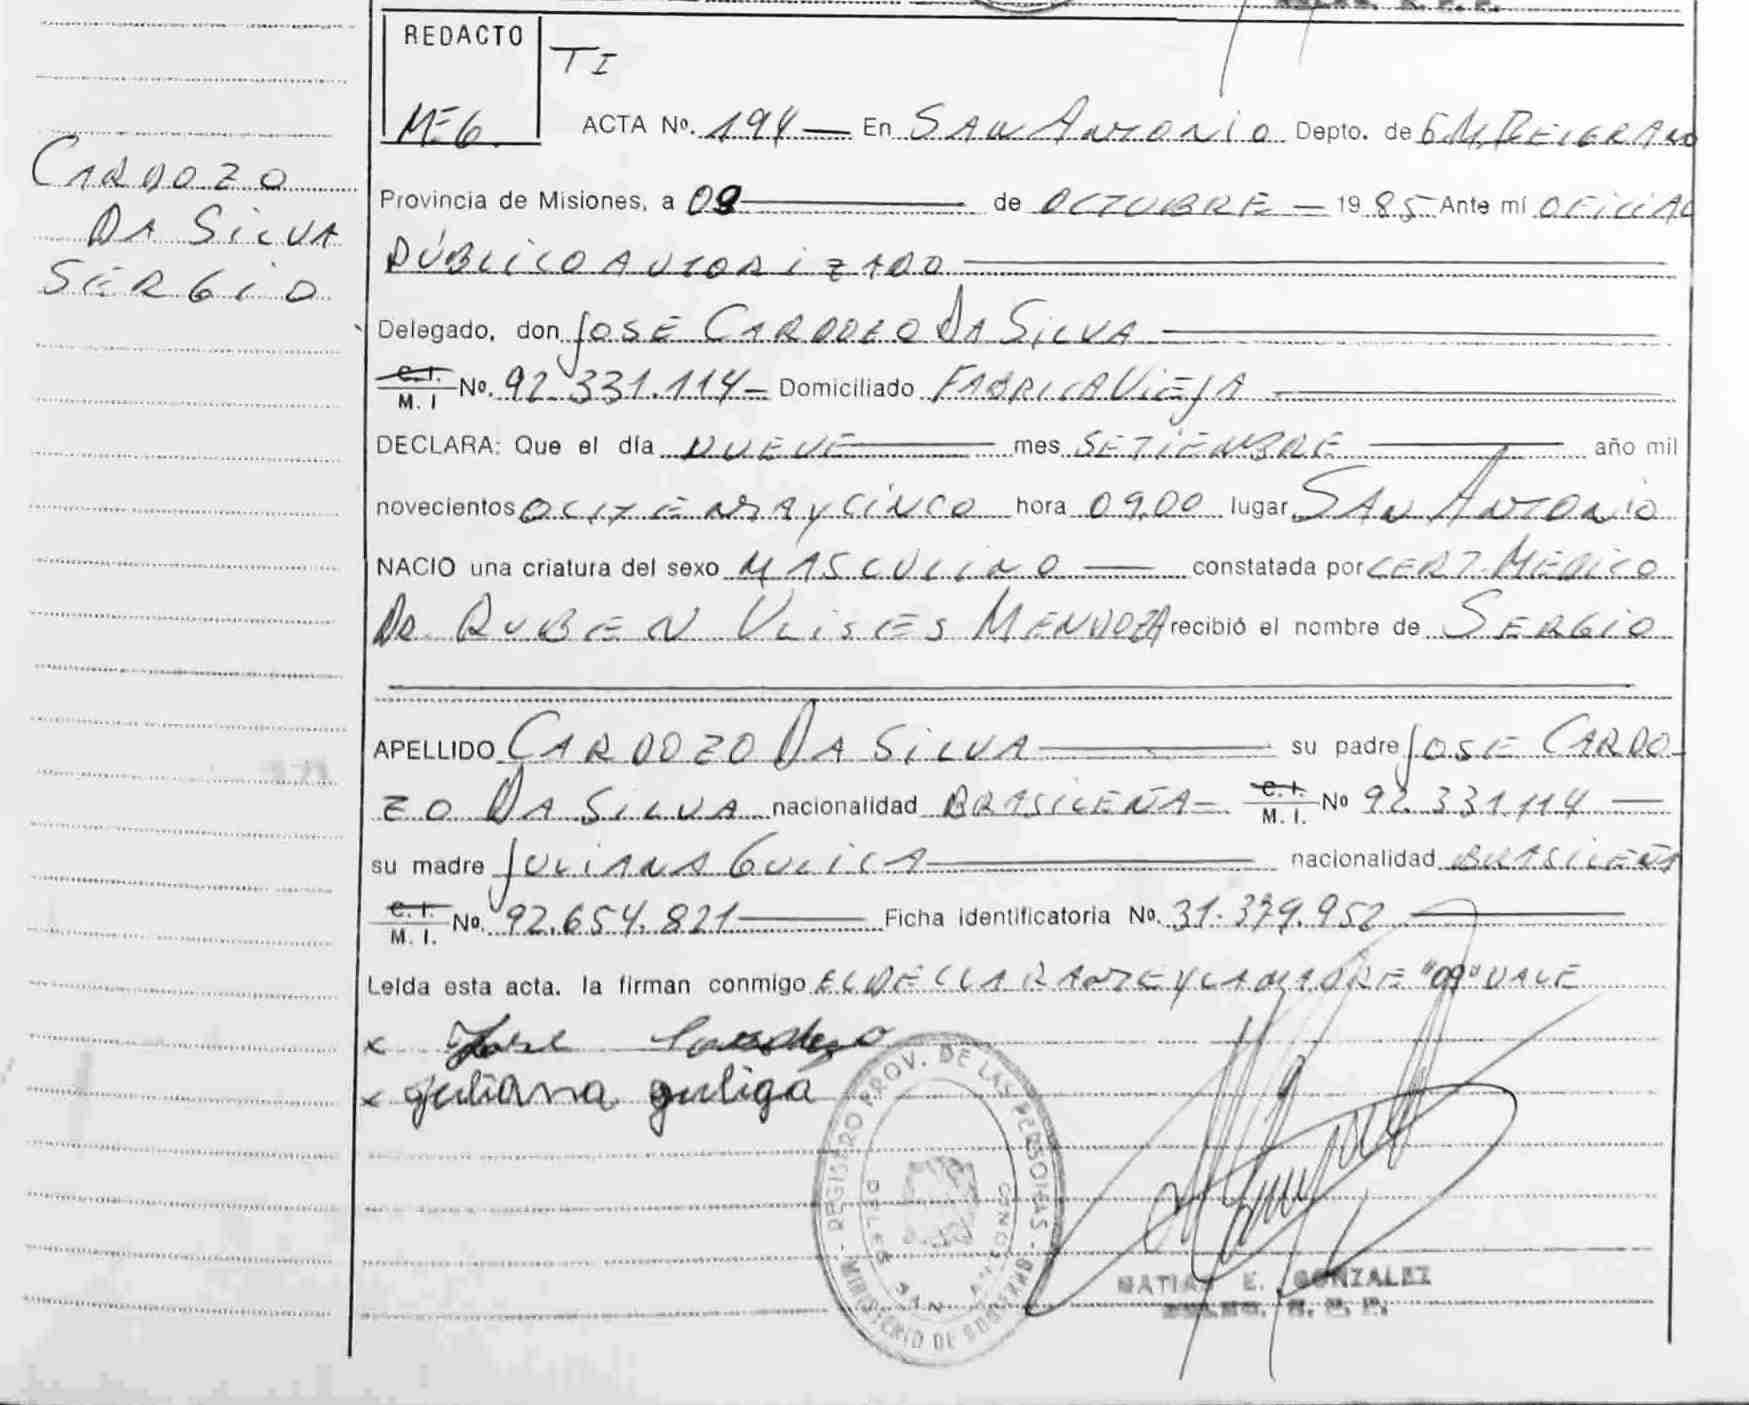 REDACTO
TI
MEG.
ACTA Nº. 194 — En SAN ANTONIO Depto. de GM. BELGRANO
CARDOZO
DA SILVA
SERGIO
Provincia de Misiones, a 09 — de OCTUBRE — 1985 Ante mí OFICIAL
PÚBLICO AUTORIZADO
Delegado, don JOSE CARDOZO DA SILVA
C.I. M. I Nº. 92.331.114 — Domiciliado FABRICA VIEJA
DECLARA: Que el día NUEVE mes SETIEMBRE año mil
novecientos OCHENTA Y CINCO hora 09,00 lugar SAN ANTONIO
NACIO una criatura del sexo MASCULINO — constatada por CERT. MEDICO
DR. RUBEN ULISES MENDOZA recibió el nombre de SERGIO
APELLIDO CARDOZO DA SILVA su padre JOSE CARDO-
ZO DA SILVA nacionalidad BRASILEÑA — C.I. M. I. Nº 92.331.114 —
su madre JULIANA GULICA nacionalidad BRASILEÑA
C.I. M. I. Nº. 92.654.821 Ficha identificatoria Nº. 31.379.952
Leída esta acta. la firman conmigo EL DECLARANTE Y LA MADRE "09" VALE
x Jose Cardozo
x juliana guliga
REGISTRO PROV. DE LAS PERSONAS - MINISTERIO DE GOBIERNO
SAN
MATIAS E. GONZALEZ